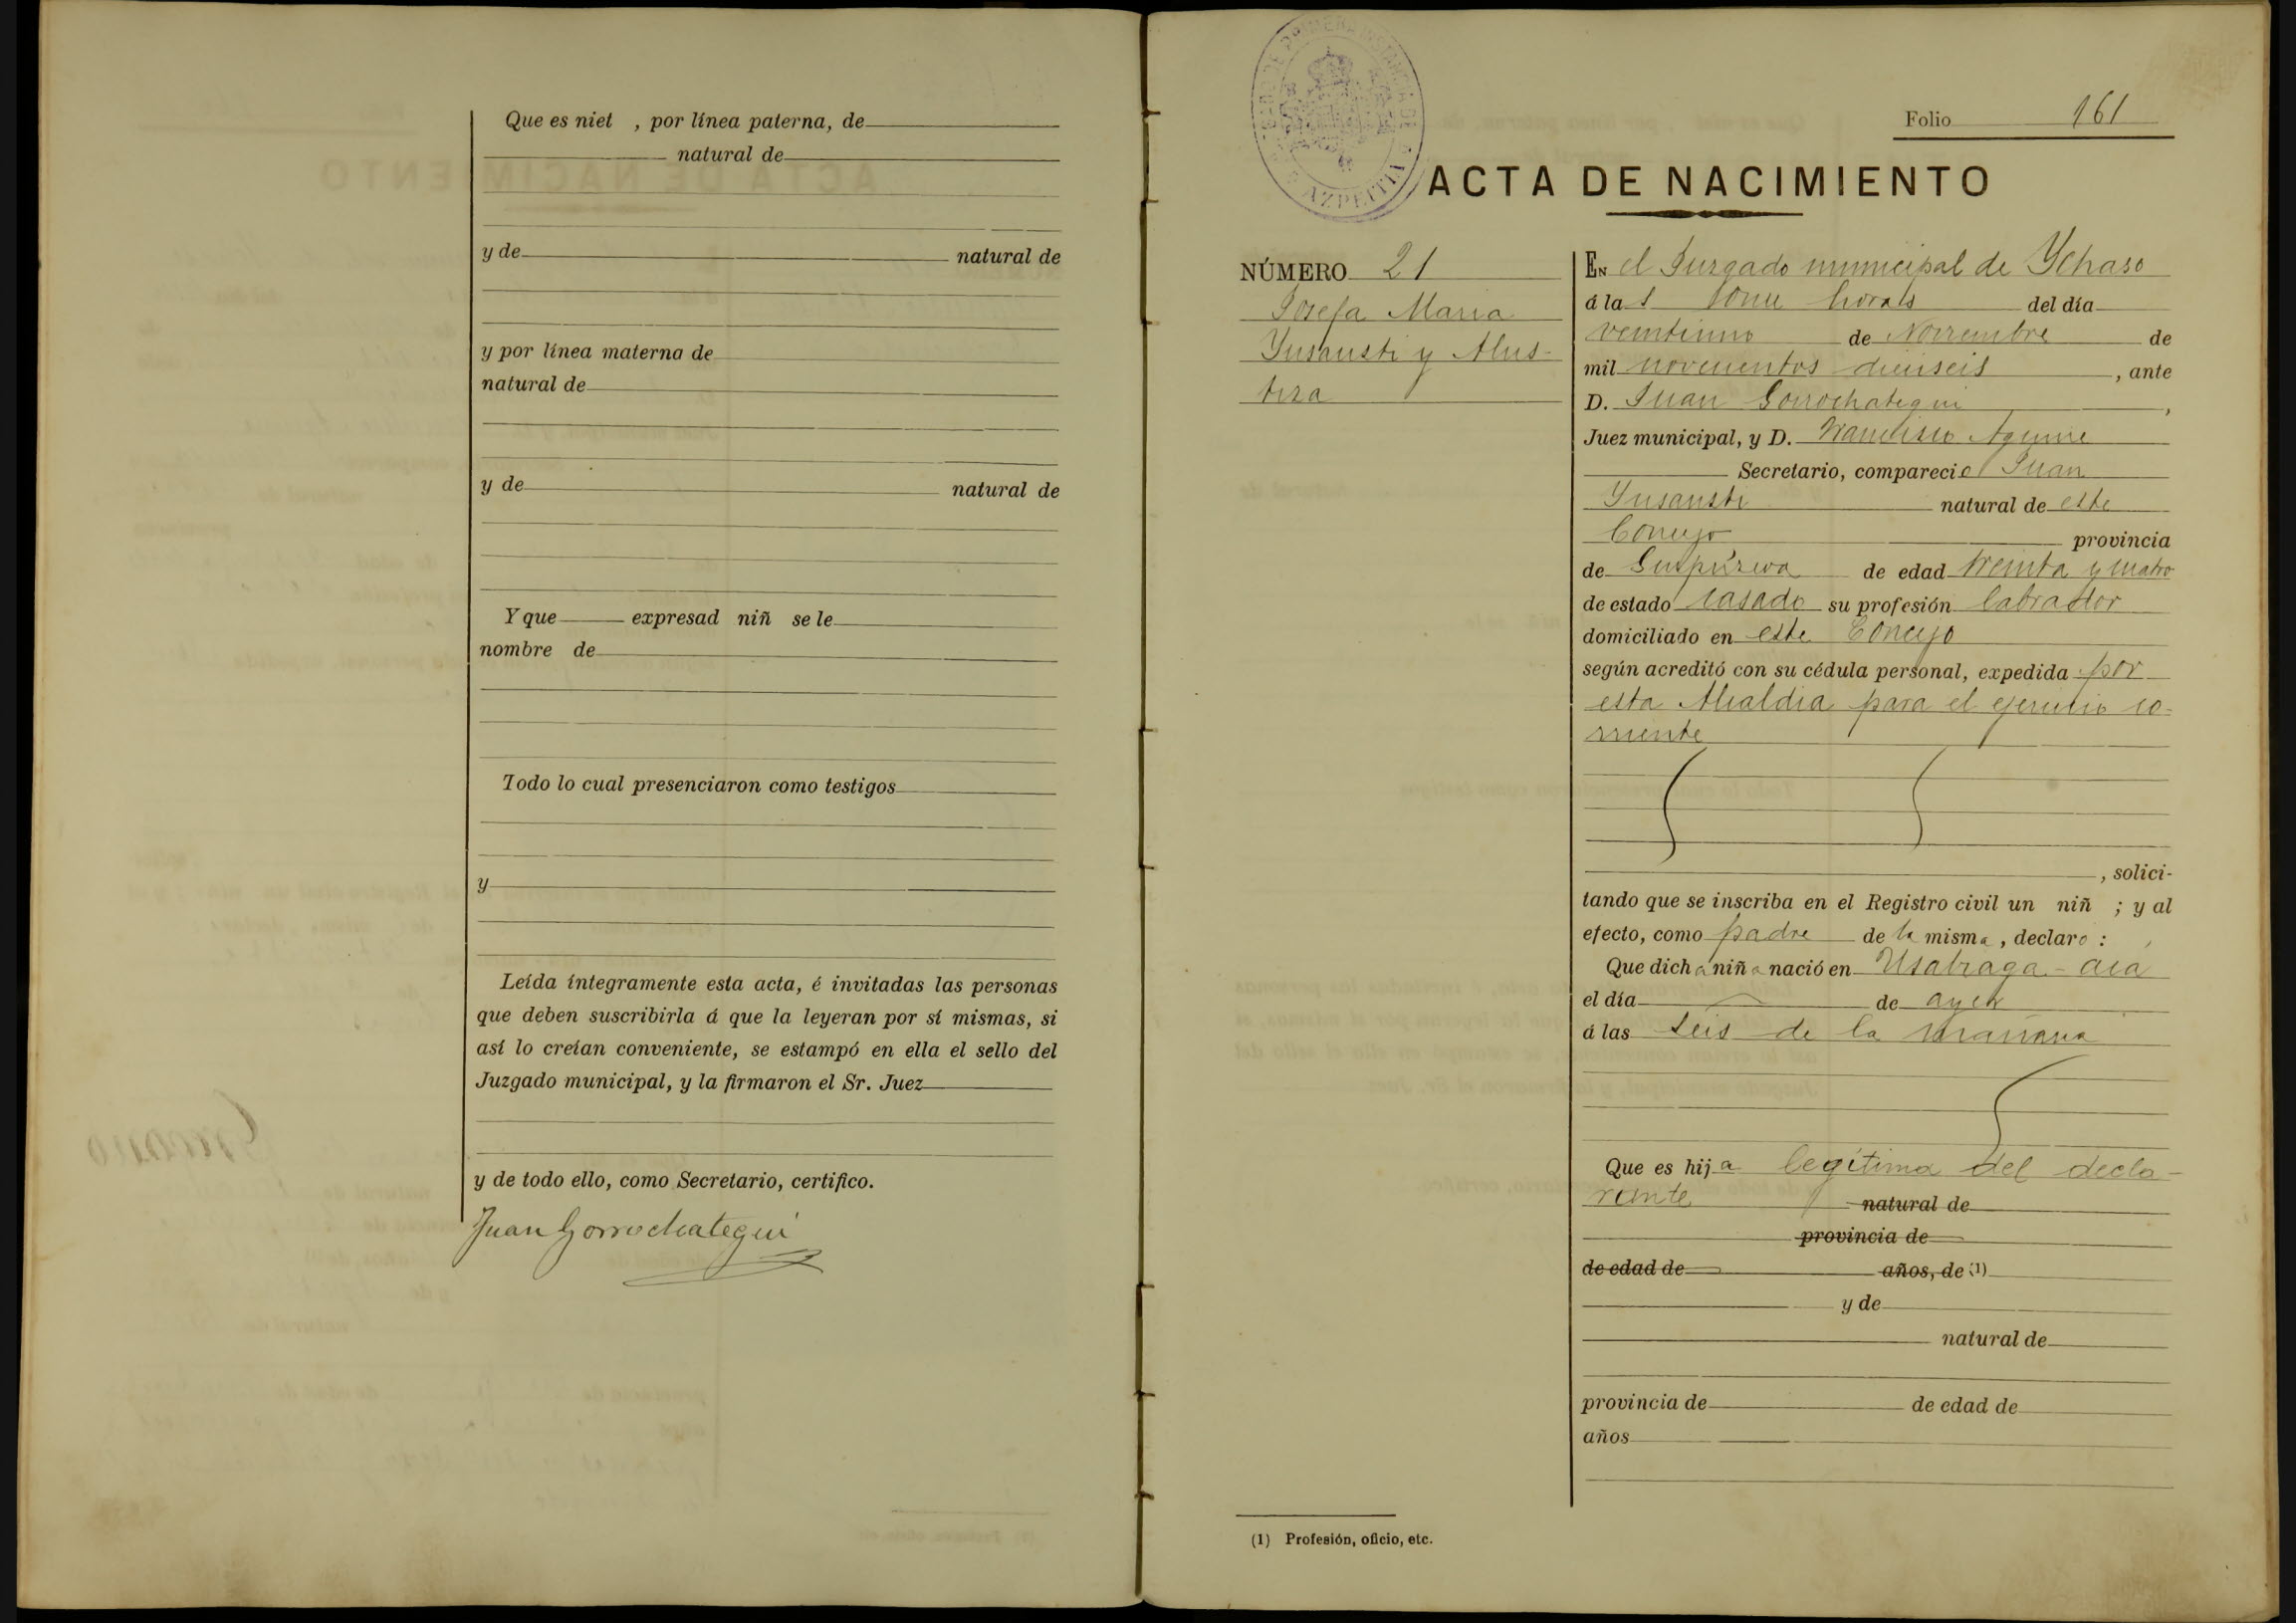 Que es niet , por línea paterna, de
natural de
y de natural de
y por línea materna de
natural de
y de natural de
Y que expresad niñ se le
nombre de
Todo lo cual presenciaron como testigos
y
Leída íntegramente esta acta, é invitadas las personas
que deben suscribirla á que la leyeran por sí mismas, si
así lo creían conveniente, se estampó en ella el sello del
Juzgado municipal, y la firmaron el Sr. Juez
y de todo ello, como Secretario, certifico.
Juan Gorrochategui
AZPEITIA
Folio 161
ACTA DE NACIMIENTO
NÚMERO 21
Josefa Maria
Ynsausti y Alus-
tiza
EN el Juzgado municipal de Ychaso
á las once horas del día
veintiuno de Noviembre de
mil novecientos dieciseis , ante
D. Juan Gorrochategui ,
Juez municipal, y D. Francisco Aguirre
Secretario, compareció Juan
Ynsausti natural de este
Concejo provincia
de Guipúzcoa de edad treinta y cuatro
de estado casado su profesión labrador
domiciliado en este Concejo
según acreditó con su cédula personal, expedida por
esta Alcaldia para el ejercicio co-
rriente
, solici-
tando que se inscriba en el Registro civil un niñ ; y al
efecto, como padre de la misma, declaro :
Que dicha niña nació en Usabraga-
el día de ayer
á las seis de la mañana
Que es hija legítima del decla-
rante natural de
provincia de
de edad de años, de (1)
y de
natural de
provincia de de edad de
años
(1) Profesión, oficio, etc.